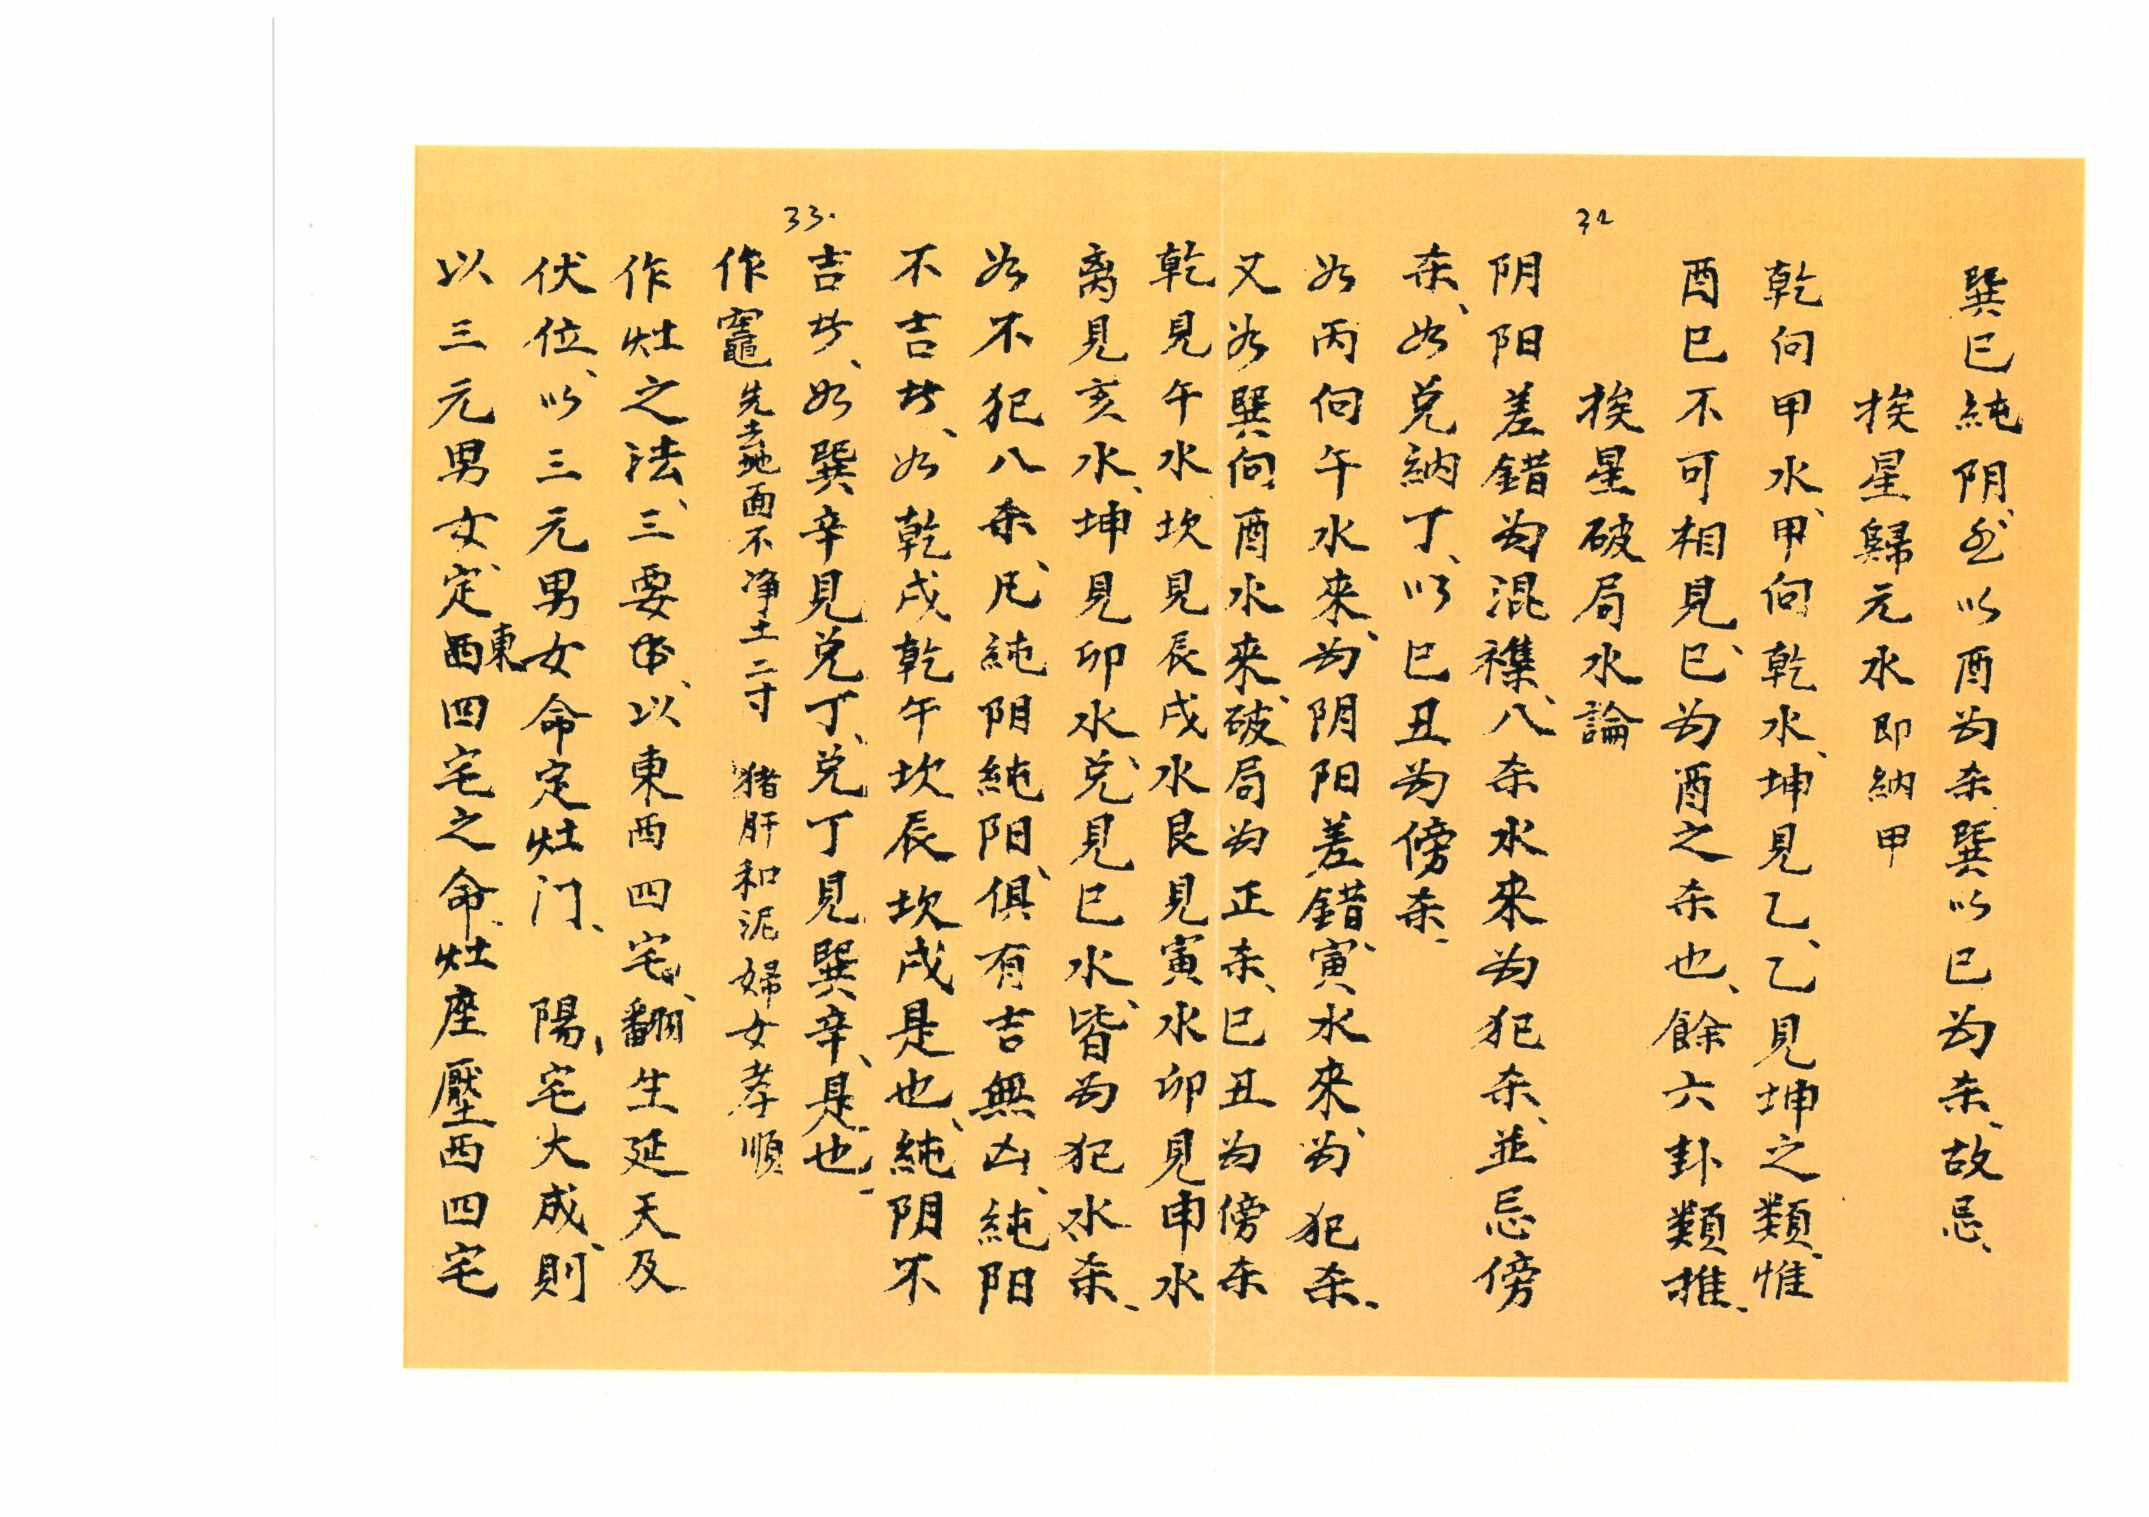 32
巽巳純阴、𠰥以酉为杀、巽以巳为杀、故忌、
挨星歸元水即納甲
乾向甲水、甲向乾水、坤見乙、乙見坤之類、惟
酉巳不可相見、巳为酉之杀也、餘六卦類推、
挨星破局水論
阴阳差錯为混襍、八杀水来为犯杀、並忌傍
杀、如兑納丁、以巳丑为傍杀、
如丙向午水来、为阴阳差錯、寅水来、为犯杀、
又如巽向酉水来、破局为正杀、巳丑为傍杀
33.
乾見午水、坎見辰戌水艮見寅水卯見申水
离見亥水、坤見卯水、兑見巳水、皆为犯水杀、
如不犯八杀、凡純阴純阳、俱有吉無凶、純阳
不吉者、如乾戌乾午坎辰坎戌是也、純阴不
吉者、如巽辛見兑丁、兑丁見巽辛、是也、
作竈先去地面不净土二寸 猪肝和泥婦女孝順
作灶之法、三要、以東西四宅、翻生延天及
伏位、以三元男女命定灶门、陽宅大成、則
以三元男女、定東西四宅之命、灶座壓西四宅